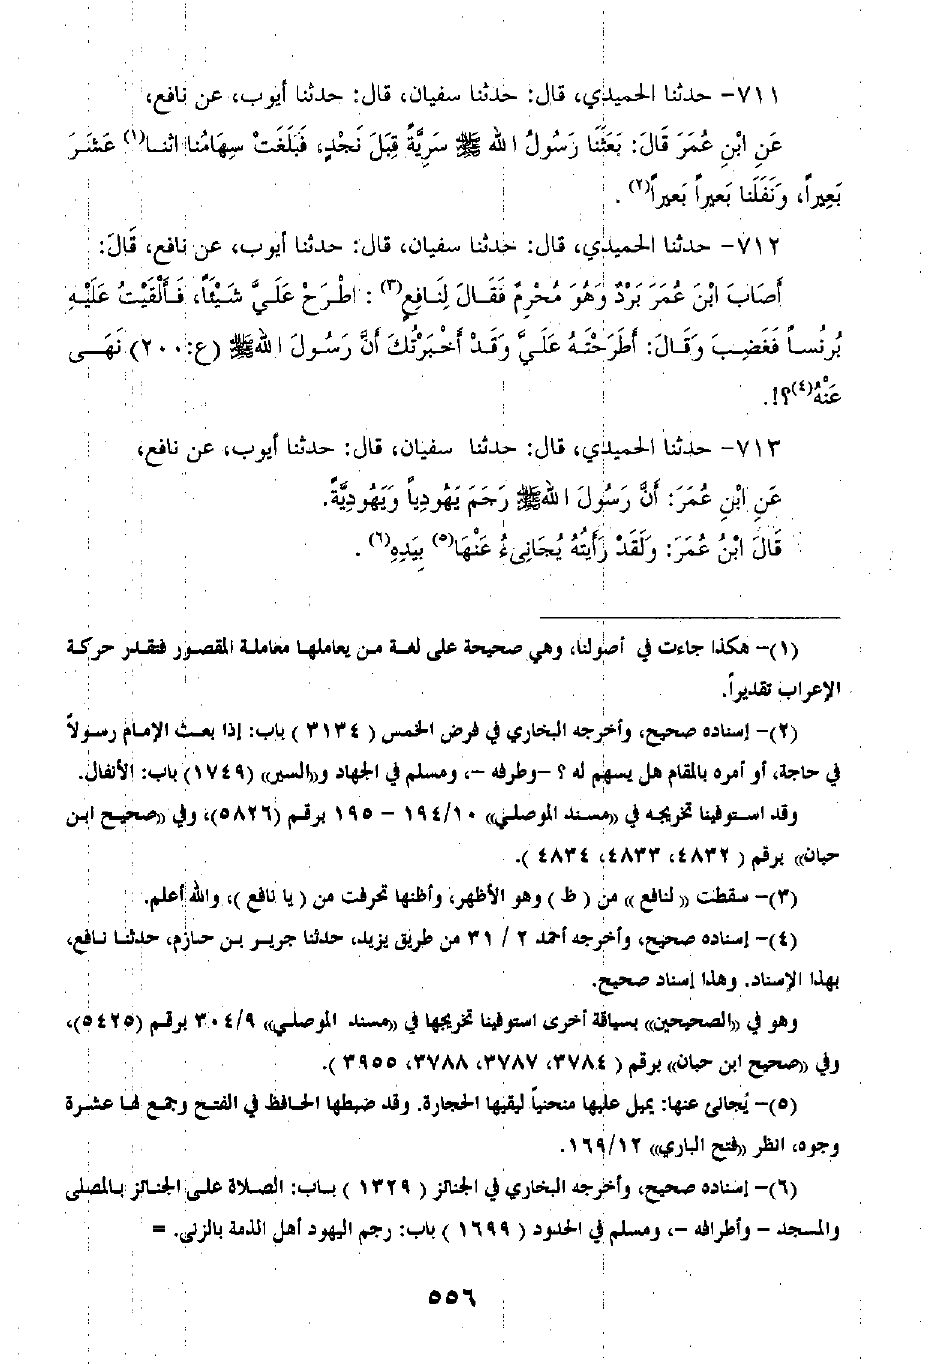 ٧١١- حدثنا الحميدي، قال: حدثنا سفيان، قال: حدثنا أيوب، عن نافع،
عَنِ ابْنِ عُمَرَ قَالَ: بَعَثَنَا رَسُولُ اللهِ ﷺ سَرِيَّةً قِبَلَ نَجْدٍ، فَبَلَغَتْ سِهَامُنَا اثنـا(١) عَشَـرَ
بَعِيراً، وَنَفَلَنا بَعيراً بَعيراً(٢).
٧١٢- حدثنا الحميدي، قال: حدثنا سفيان، قال: حدثنا أيوب، عن نافع، قَالَ:
أَصَابَ ابْنَ عُمَرَ بَرْدٌ وَهُوَ مُحْرِمٌ فَقَـالَ لِنَافِعٍ(٣): اطْرَحْ عَلَيَّ شَـيْئاً، فَـأَلْقَيْتُ عَلَيْـهِ
بُرْنُسـاً فَغَضِـبَ وَقَـالَ: أَطَرَحْتَـهُ عَلَـيَّ وَقَـدْ أَخْـبَرْتُكَ أَنَّ رَسُـولَ اللهِ ﷺ (ع:٢٠٠) نَهَـى
عَنْهُ(٤)؟!.
٧١٣- حدثنا الحميدي، قال: حدثنا سفيان، قال: حدثنا أيوب، عن نافع،
عَنِ ابْنِ عُمَرَ: أَنَّ رَسُولَ اللهِ ﷺ رَجَمَ يَهُودِياً وَيَهُودِيَّةً.
قَالَ ابْنُ عُمَرَ: وَلَقَدْ رَأَيْتُهُ يُجَانِئُ عَنْهَا(٥) بِيَدِهِ(٦).
(١)- هكذا جاءت في أصولنا، وهي صحيحة على لغة مـن يعاملهـا معاملـة المقصـور فتقـدر حركـة
الإعراب تقديراً.
(٢)- إسناده صحيح، وأخرجه البخاري في فرض الخمس ( ٣١٣٤ ) باب: إذا بعـث الإمـام رسـولاً
في حاجة، أو أمره بالمقام هل يسهم له ؟ -وطرفه -، ومسلم في الجهاد و«السير» (١٧٤٩) باب: الأنفال.
وقد استـوفينا تخريجـه في «مسـند الموصلـي» ١٠/ ١٩٤ - ١٩٥ برقـم (٥٨٢٦)، وفي «صحيح ابـن
حبان» برقم ( ٤٨٣٢، ٤٨٣٣، ٤٨٣٤ ).
(٣)- سقطت « لنافع » من ( ظ ) وهو الأظهر، وأظنها تحرفت من ( يا نافع )، والله أعلم.
(٤)- إسناده صحيح، وأخرجه أحمد ٢ / ٣١ من طريق يزيد، حدثنا جريـر بـن حـازم، حدثنـا نـافع،
بهذا الإسناد. وهذا إسناد صحيح.
وهو في «الصحيحين» بسياقة أخرى استوفينا تخريجها في «مسند الموصلي» ٩/ ٣٠٤ برقـم (٥٤٢٥)،
وفي «صحيح ابن حبان» برقم ( ٣٧٨٤، ٣٧٨٧، ٣٧٨٨، ٣٩٥٥ ).
(٥)- يُجانئ عنها: يميل عليها منحنياً ليقيها الحجارة. وقد ضبطها الحافظ في الفتح وجمع لها عشـرة
وجوه، انظر «فتح الباري» ١٢/ ١٦٩.
(٦)- إسناده صحيح، وأخرجه البخاري في الجنائز ( ١٣٢٩ ) بـاب: الصـلاة علـى الجنـائز بـالمصلى
والمسجد - وأطرافه -، ومسلم في الحدود ( ١٦٩٩ ) باب: رجم اليهود أهل الذمة بالزنى. =
٥٥٦